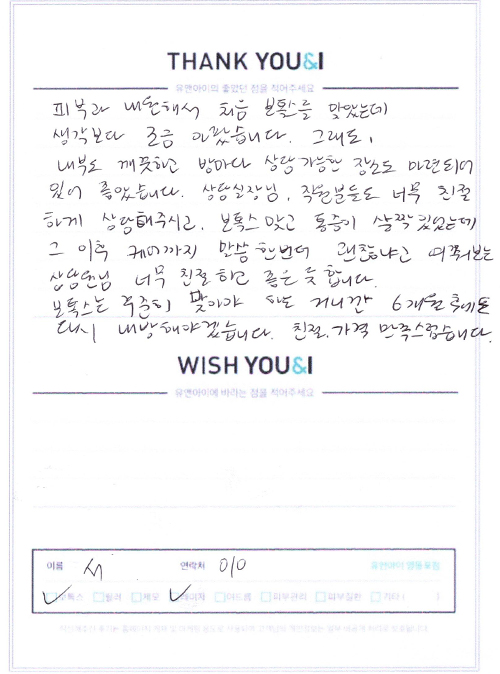 THANK YOU&I
유앤아이의 좋았던 점을 적어주세요
피부과 내원해서 처음 보톡스를 맞았는데
생각보다 조금 아팠습니다. 그래도,
내부도 깨끗하고 방마다 상담 가능한 장소도 마련되어
있어 좋았습니다. 상담실장님, 직원분들도 너무 친절
하게 상담해주시고, 보톡스 맞고 통증이 살짝 있었는데
그 이후 케어까지 말씀 한번더 괜찮냐고 여쭤보는
상담선생님 너무 친절하고 좋은 듯 합니다.
보톡스는 꾸준히 맞아야 하는 거니깐 6개월 후에도
다시 내방해야겠습니다. 친절, 가격 만족스럽습니다.
WISH YOU&I
유앤아이에 바라는 점을 적어주세요
이름 서 연락처 010 유앤아이 영등포점
보톡스 필러 제모 레이저 여드름 피부관리 피부질환 기타 ( )